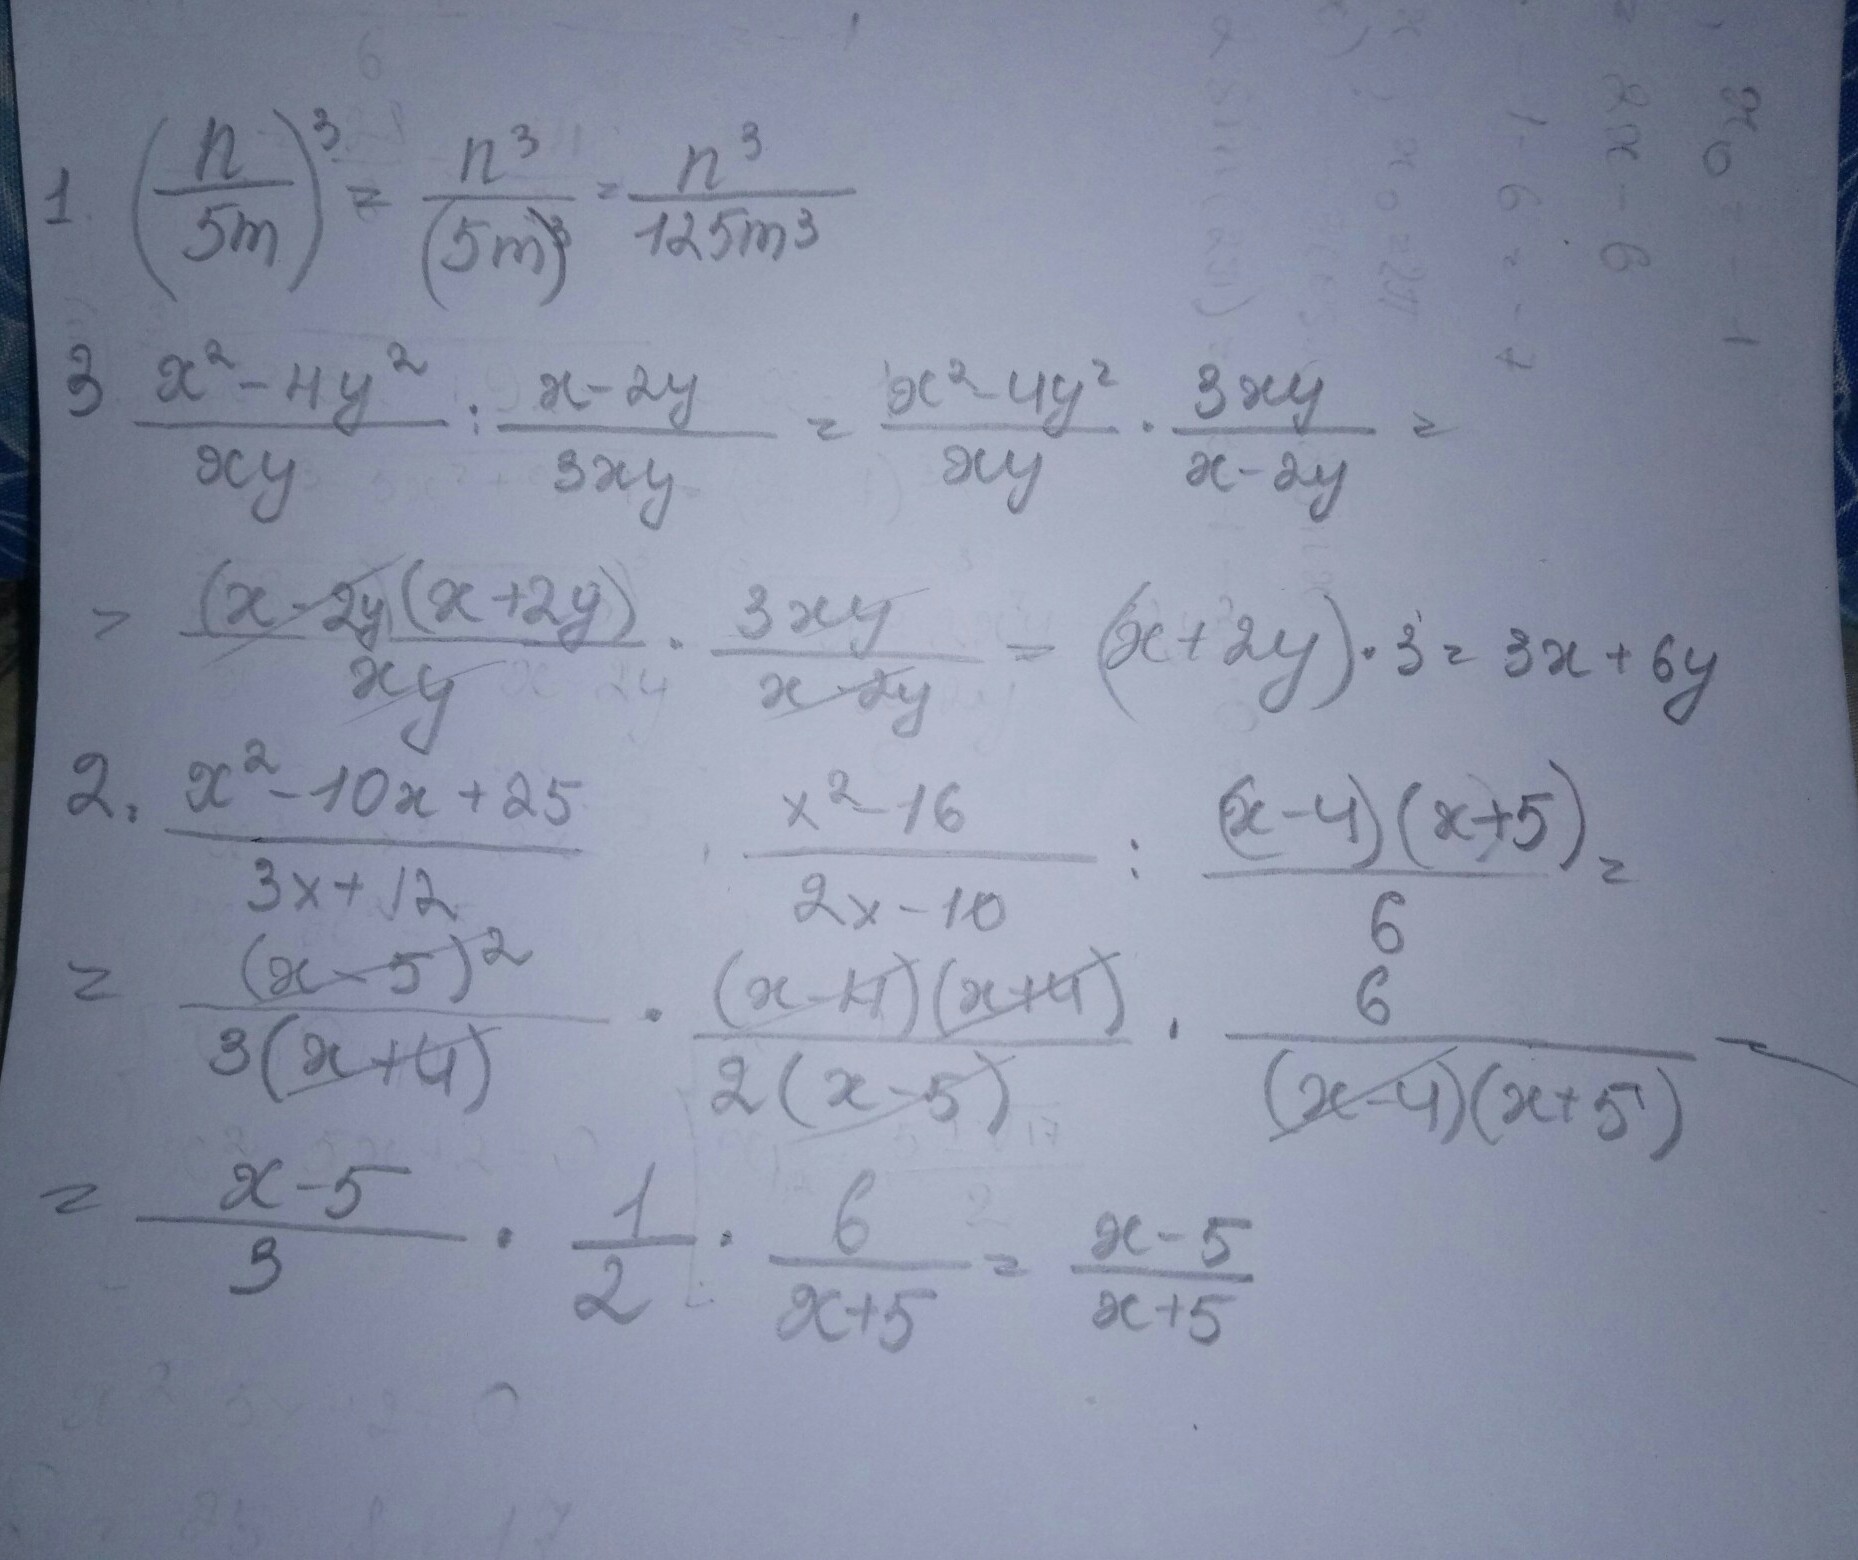 1. (n/5m)³ = n³/(5m)³ = n³/125m³
3 x²-4y²/xy : x-2y/3xy = x²-4y²/xy · 3xy/x-2y =
= (x-2y)(x+2y)/xy · 3xy/x-2y = (x+2y)·3 = 3x+6y
2. x²-10x+25/3x+12 · x²-16/2x-10 : (x-4)(x+5)/6 =
= (x-5)²/3(x+4) · (x-4)(x+4)/2(x-5) · 6/(x-4)(x+5) =
= x-5/3 · 1/2 · 6/x+5 = x-5/x+5